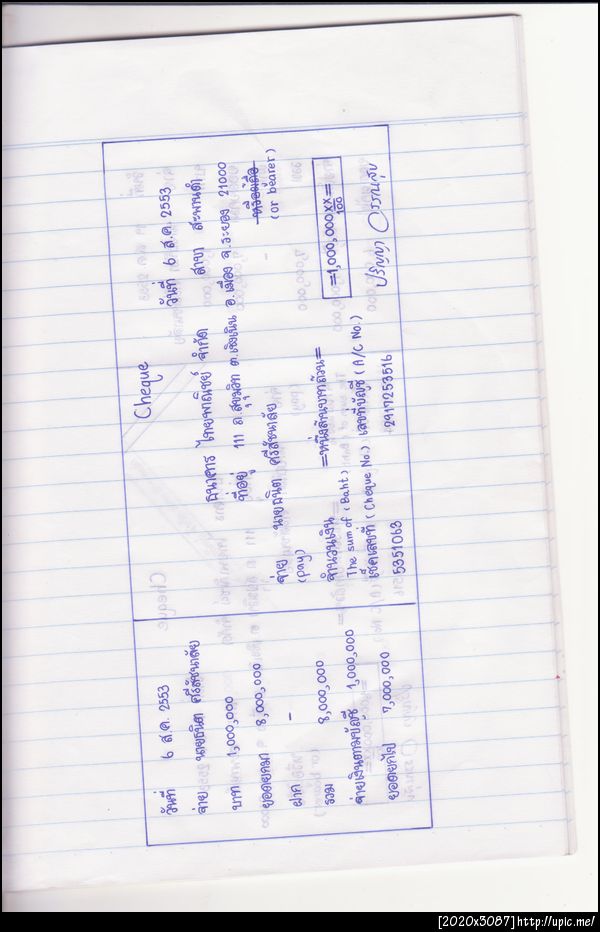 Cheque
วันที่ 6 ส.ค. 2553
จ่าย นายธนิต ศรีสัชนาลัย
บาท 1,000,000
ยอดยกมา 8,000,000
ฝาก -
รวม 8,000,000
จ่ายเงินตามบัญชี 1,000,000
ยอดยกไป 7,000,000
วันที่ 6 ส.ค. 2553
ธนาคาร ไทยพาณิชย์ จำกัด สาขา สะพานดำ
ที่อยู่ 111 ถ.สุขุมวิท ต.เชิงเนิน อ.เมือง จ.ระยอง 21000
จ่าย นายธนิต ศรีสัชนาลัย หรือผู้ถือ
(pay) (or bearer)
จำนวนเงิน =หนึ่งล้านบาทถ้วน= =1,000,000xx/100=
The sum of (Baht)
เช็คเลขที่ (Cheque No.) เลขที่บัญชี (A/C No.)
5351063 2917253516
[2020x3087]http://upic.me/